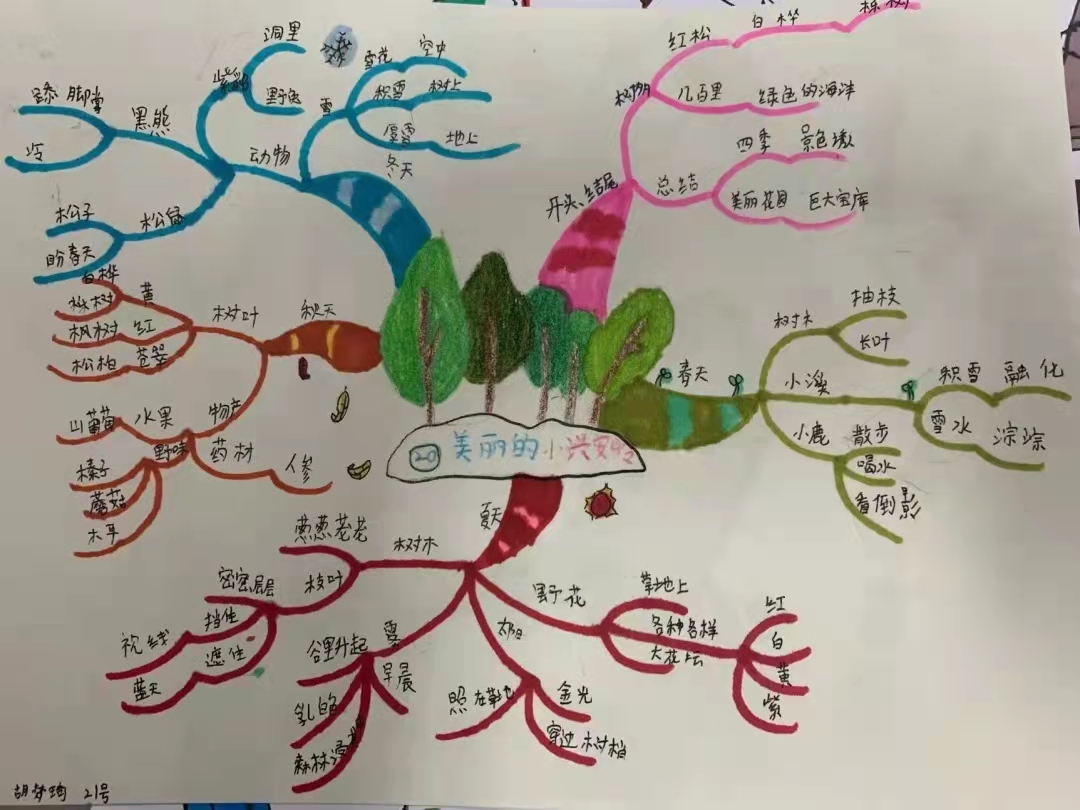 20 美丽的小兴安岭
开头、结尾
树多
红松
白桦
栎树
几百里
绿色的海洋
总结
四季
景色诱
美丽花园
巨大宝库
春天
树木
抽枝
长叶
小溪
积雪
融化
雪水
淙淙
小鹿
散步
喝水
看倒影
夏天
树木
葱葱茏茏
枝叶
密密层层
挡住
视线
遮住
蓝天
雾
谷里升起
早晨
乳白
森林浸
太阳
照在草地
金光
穿过树梢
野花
草地上
各种各样
大花坛
红
白
黄
紫
秋天
树叶
黄
白桦
栎树
红
枫树
苍翠
松柏
物产
水果
山葡萄
野味
榛子
蘑菇
木耳
药材
人参
冬天
雪
雪花
空中
积雪
树上
厚雪
地上
动物
紫貂
洞里
野兔
黑熊
舔脚掌
松鼠
松子
盼春天
21号